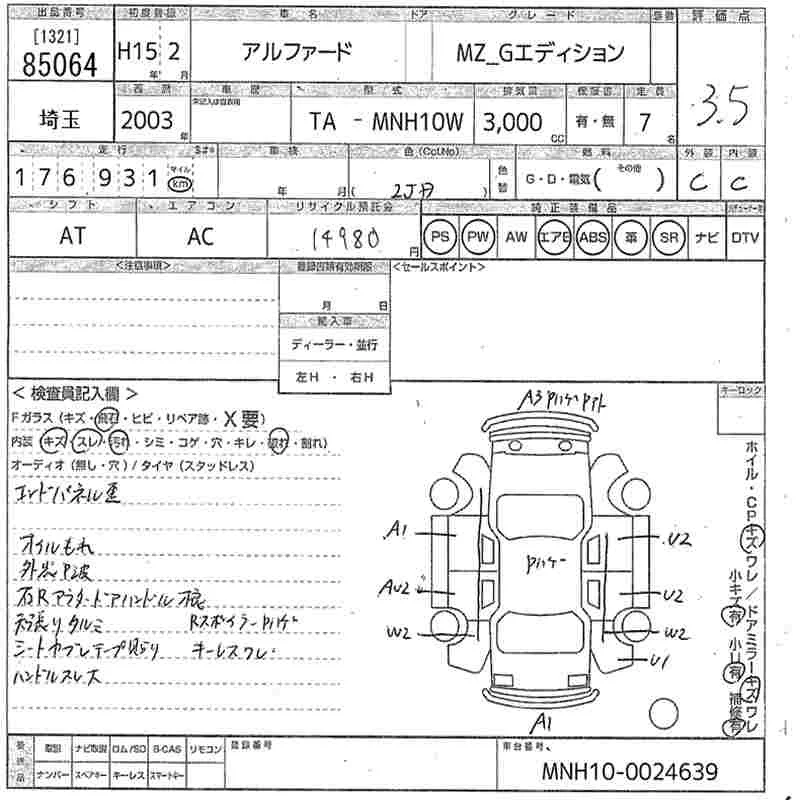 出品番号 初度登録 車名 ドア グレード 評価点
[1321]
85064 H15 2 アルファード MZ_Gエディション 3.5
年 月
西暦 車歴 型式 排気量 保証書 定員
埼玉 2003年 TA - MNH10W 3,000 CC 有・無 7名
走行 車検 色(Col.No) 燃料 外装 内装
176931 マイル km 年 月 ( 2J7 ) 色替 G・D・電気( その他 ) C C
シフト エアコン リサイクル預託金 純正装備品
AT AC 14980円 PS PW AW エアB ABS 革 SR ナビ DTV
<注意事項> 登録書類有効期限 <セールスポイント>
月 日
輸入車
ディーラー・並行
左H ・ 右H
< 検査員記入欄 > キーロック
Fガラス (キズ・飛石・ヒビ・リペア跡・X要)
内装 (キズ・スレ・汚れ・シミ・コゲ・穴・キレ・破れ・割れ)
オーディオ (無し・穴) / タイヤ (スタッドレス)
エンドパネル歪
オイルもれ
外装P波
右Rアウタードアハンドル
天張りタルミ Rスポイラーハゲ
シートカブレテープ貼り キーレスワレ
ハンドルスレ大
A3
A1 U2
ハゲ
AU2 U2
W2 W2
U1
A1
ホイル・CPキズワレ/ドアミラーキズワレ
小キズ有 小U有 補修有
取説 ナビ取説 ロム/SD B-CAS リモコン 登録番号 車台番号
ナンバー スペアキー キーレス スマートキー MNH10-0024639